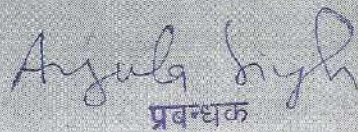 Anjula Singh
प्रबन्धक